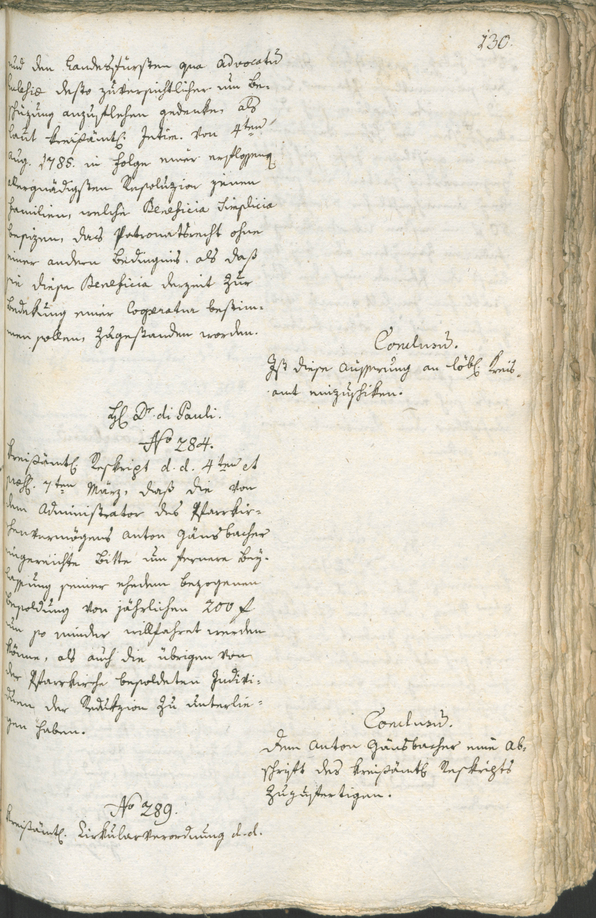 130.
und den Landesfürsten qua Advocatū
Ecclesiæ desto zuversichtlicher um Be-
schüzung anzuflehen gedenke, als
laut kreisämtl. Intim. von 4ten
Aug. 1785. in Folge einer erflossenen
allergnädigsten Resoluzion jenen
Familien, welche Beneficia Simplicia
besizen, das Patronatsrecht ohne
einer andern Bedingnis, als daß
sie diese Beneficia derzeit zur
Bedekung einer Cooperatur bestim-
men sollen, zugestanden worden.
Conclusū.
Ist diese Äusserung an Löbl. Kreis-
amt einzuschiken.
H. Dr. di Pauli.
No 284.
Kreisämtl. Reskript d. d. 4ten et
præs. 7ten März, daß die von
dem Administrator des Pfarrkir-
chenvermögens Anton Gänsbacher
eingereichte Bitte um fernere Bey-
lassung seiner ehedem bezogenen
Besoldung von jährlichen 200 f
um so minder willfahret werden
könne, als auch die übrigen von
der Pfarrkirche besoldeten Indivi-
duen der Redukzion zu unterlie-
gen haben.
Conclusū.
Dem Anton Gänsbacher eine Ab-
schrift des kreisämtl. Reskripts
zuzufertigen.
No 289.
Kreisämtl. Cirkularverordnung d. d.